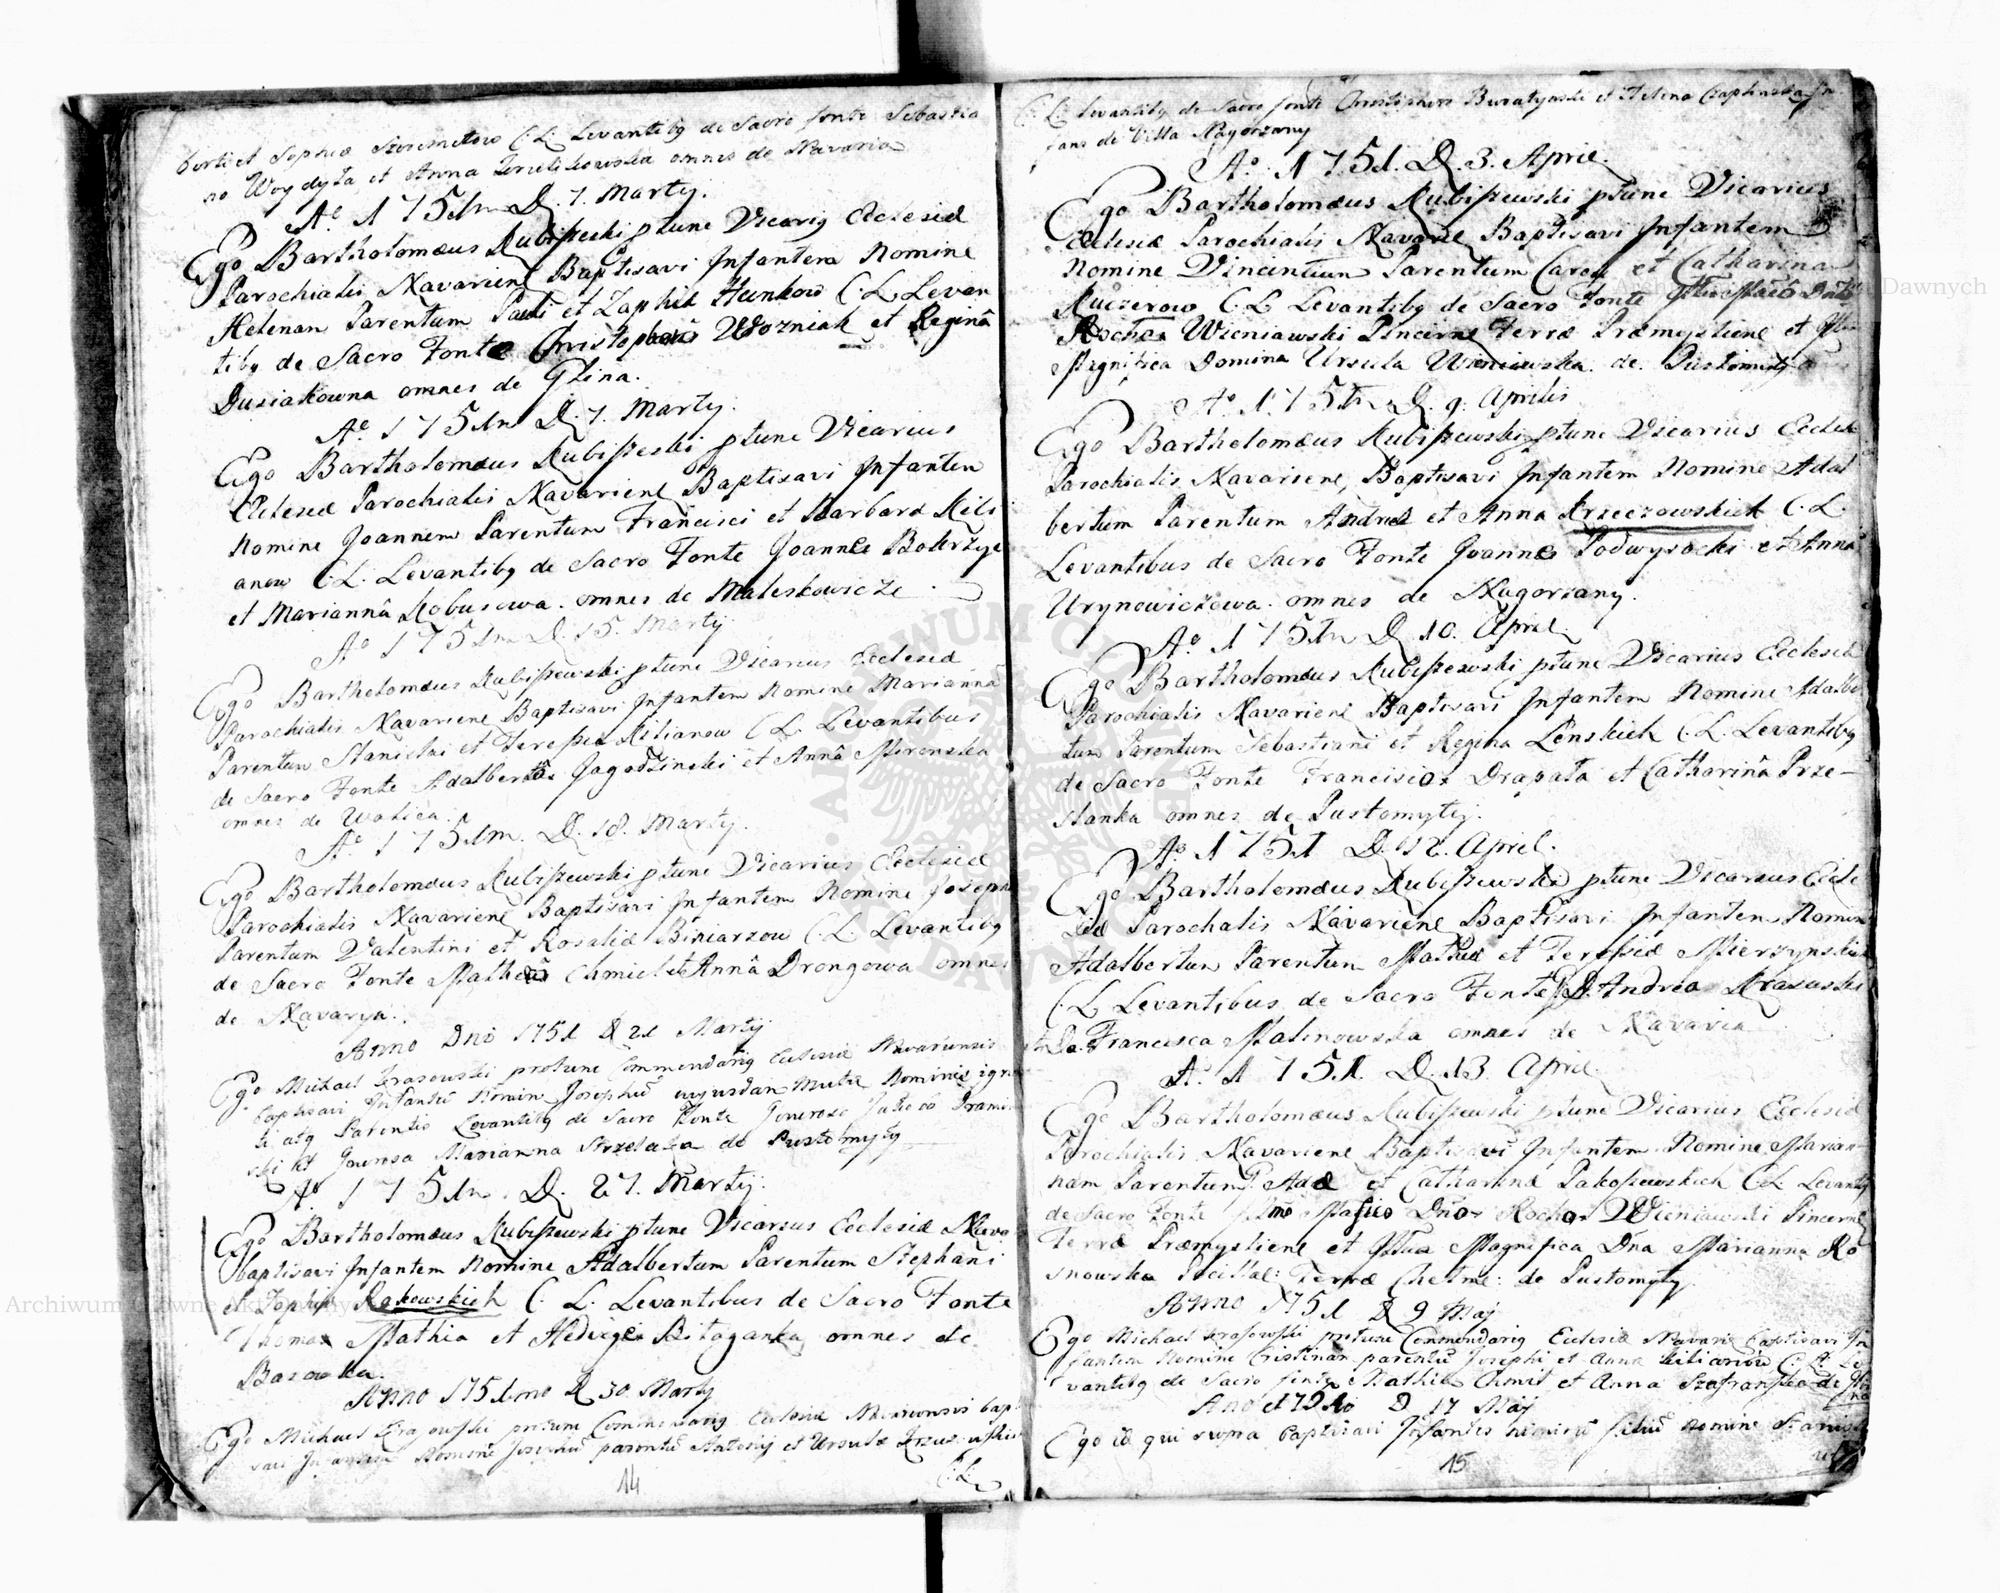 berti et Sophiæ Szeremetow C. L. Levantibg de Sacro fonte Sebastia
no Woydyła et Anna omnes de Navaria
Ao 1751m D. 7. Martij.
Ego Bartholomæus Rubiszeski ptunc Vicarig Ecclesiæ
Parochialis Navarienē Baptisavi Infantem Nomine
Helenan Parentum Pauli et Zaphiæ Hunkow C. L. Levan
tibg de Sacro Fonte Christophoro Wozniak et Reginâ
Dusiakowna omnes de Glina.
Ao 1751m D. 7. Martij.
Ego Bartholomæus Rubiszeski ptunc Vicarius
Ecclesiæ Parochialis Navarienē Baptisavi Infantem
Nomine Joannem Parentum Francisci et Barbaræ Kili
anow C. L. Levantibg de Sacro Fonte Joanne
et Mariannâ Kobusowa. omnes de Maleskowicze
Ao 1751m D. 15. Martij
Ego Bartholomæus Rubiszewski ptunc Vicarius Ecclesiæ
Parochialis Navarienē Baptisavi Infantem Nomine Mariannâ
Parentum Stanislai et Teressiæ Kilianow C. L. Levantibus
de Sacro Fonte Adalberto Jagodzinski et Annâ Mirenska
omnes de Wolica.
Ao 1751m. D. 18. Martij.
Ego Bartholomæus Rubiszewski ptunc Vicarius Ecclesiæ
Parochialis Navarienē Baptisavi Infantem Nomine Joseph
Parentum Valentini et Rosaliæ Biniarzow C. L. Levantibg
de Sacro Fonte Matheo Chmiel et Annâ Drongowa omnes
de Navarya.
Anno Dno 1751 D 21 Martij
Ego Michael Krasowski protunc Commendarig Ecclesiæ Navariensis
baptisavi Infantē Nomin Josephū cujusdan Mutæ Nominis igno
ti atq Parentis Levantibg de Sacro Fonte Generoso
ski et Generosa Marianna Strzelaka de Pustomyty
Ao 1751m. D. 27. Martij.
Ego Bartholomæus Rubiszewski ptunc Vicarius Ecclesiæ Nava
baptisavi Infantem Nomine Adalbertum Parentum Stephani
et Zophiæ Rakowskich C. L. Levantibus de Sacro Fonte
Thoma Mathia et Hedvige Bitaganka omnes de
Basowka.
Anno 1751mo D 30 Martij
Ego Michael Krasowski protunc Commendarig Ecclesiæ Navariensis bap
savi Infantem Nomine Josephū parentū Antonij et Ursulæ
C. L.
14
C. L. Levantibg de Sacro fonte Christophoro Buratynski et Helena Czaplinska In
fans de Villa Nagorzany
Ao. 1751. D. 3. April.
Ego Bartholomæus Rubiszewski ptunc Vicarius
Ecclesiæ Parochialis Navariē Baptisavi Infantem
Nomine Vincentium Parentum Caroli et Catharina
Kuczerow C. L. Levantibg de Sacro Fonte Mag Dno
Rocho Wieniawski Pincerna Terræ Præmyslienē et
Magnifica Domina Ursula Wieniawska de Pustomyty
Ao. 1751m D. 9. Aprilis
Ego Bartholomæus Rubiszewski ptunc Vicarius Eccles
Parochialis Navarienē, Baptisavi Infantem Nomine Adal
bertum Parentum Andreæ et Anna Krzeczowskich C. L.
Levantibus de Sacro Fonte Joanne Podwysocki et Annâ
Urynowiczowa. omnes de Nagorzany.
Ao. 1751m D. 10. April.
Ego Bartholomæus Rubiszewski ptunc Vicarius Ecclesiæ
Parochialis Navarienē Baptisavi Infantem Nomine Adalber
tum Parentum Sebastiani et Regina Lenskich C. L. Levantibg
de Sacro Fonte Francisco Drapała et Catharinâ Prze-
slanka omnes de Pustomyty.
Ao. 1751 D. 12. April.
Ego Bartholomæus Rubiszewski ptunc Vicarius Eccle
siæ Parochalis Navarienē Baptisavi Infantem Nomin
Adalbertum Parentum Mathiæ et Teressiæ Mierzynskich
C. L. Levantibus de Sacro Fonte D. Andrea Krasuski
et Da. Francisca Malinowska omnes de Navaria
A. 1751. D. 13. April.
Ego Bartholomæus Rubiszewski ptunc Vicarius Ecclesiæ
Parochialis Navarienē Baptisavi Infantem Nomine Marian-
nam Parentum P. Adæ et Catharinæ Pakoszewskich C. L. Levantibg
de Sacro Fonte Magfico Dno Rocho Wieniawski Pincerna
Terræ Præmyslienē et Magnifica Dna Marianna Ro
snowska Pocillat: Terræ Chelme: de Pustomyty.
Anno 1751 D 9 Maj
Ego Michael Krasowski protunc Commendarig Ecclesiæ Navariē baptisavi In
fantem Nomine Cristinan parentū Josephi et Anna Kilianow C. L. Le
vantibg de Sacro fonte Mathia Chmil et Anna Szafranska de Gli
na
Anno 1751o D 17 Maj
Ego id qui supra baptisavi Infantis nimirū filiū Nomine Stanisla
15
ARCHIWUM GŁÓWNE AKT DAWNYCH
Archiwum Główne Akt Dawnych
Archiwum Główne Akt Dawnych